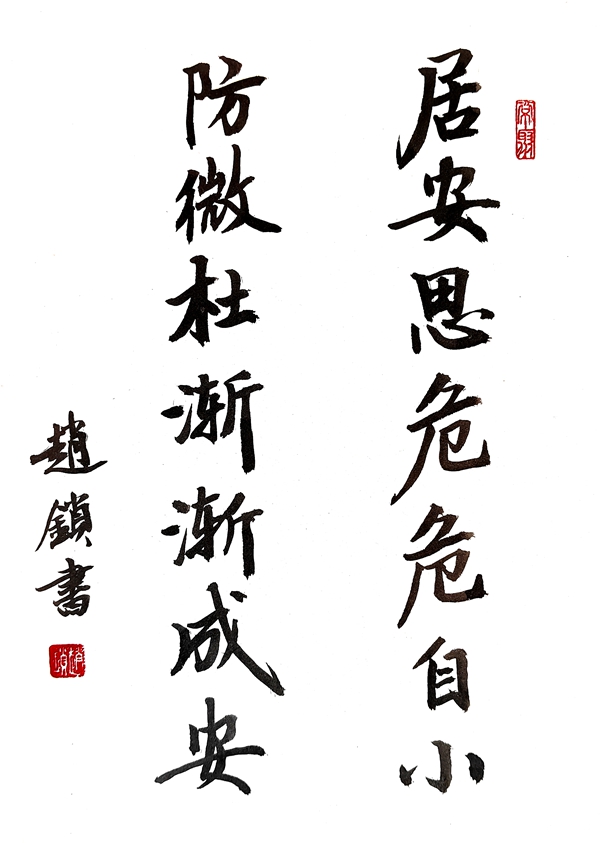 居安思危危自小
防微杜渐渐成安
趙鎖書